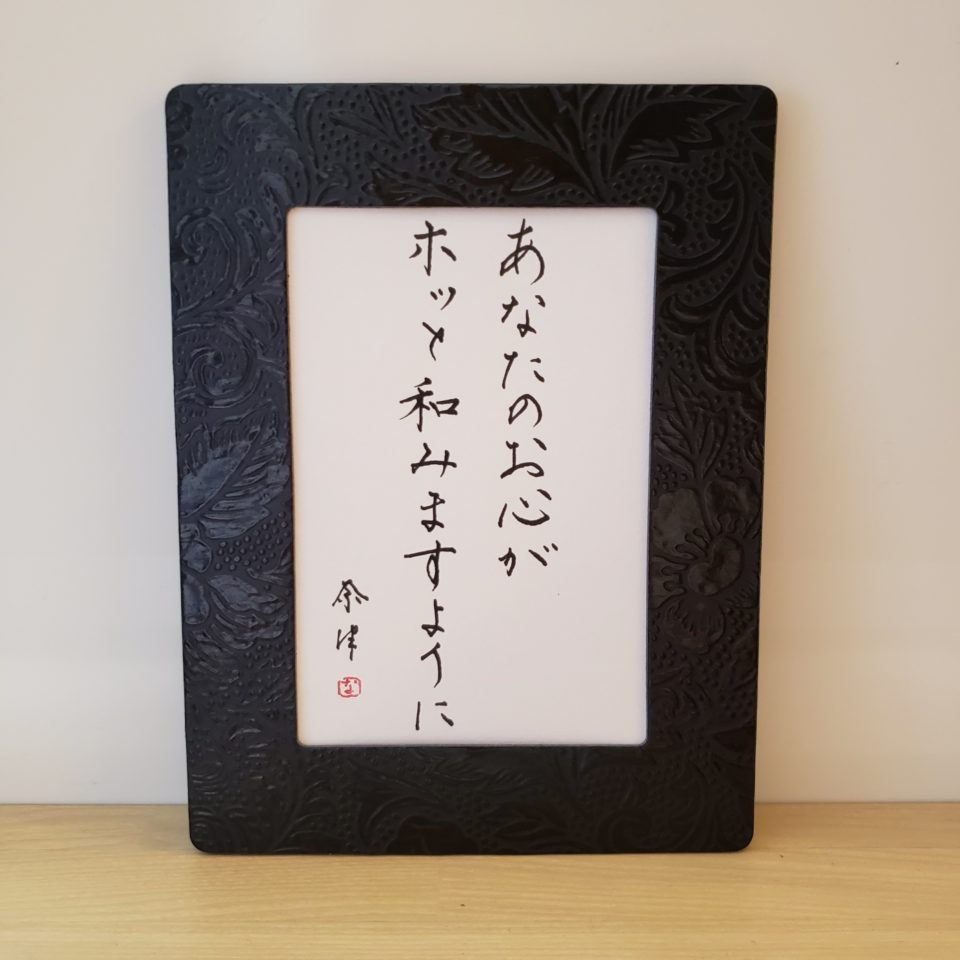 あなたのお心が
ホッと和みますように
奈津
な